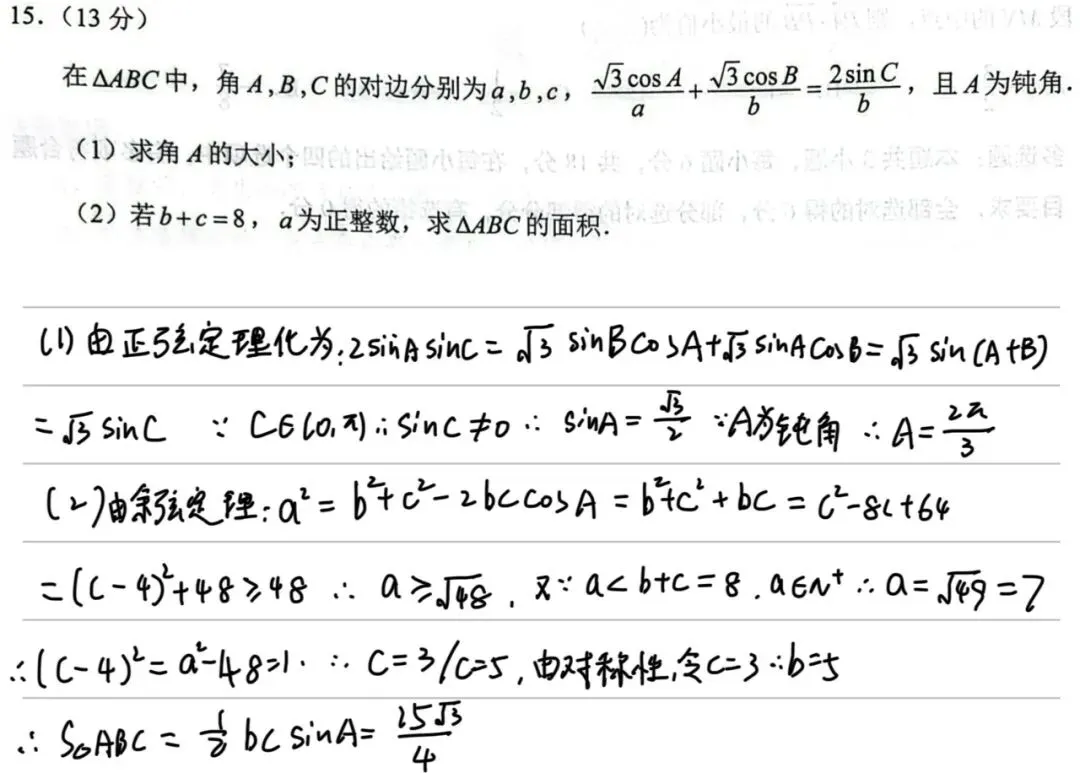 15.（13 分）
在 ΔABC 中，角 A,B,C 的对边分别为 a,b,c，√3cosA/a + √3cosB/b = 2sinC/b，且 A 为钝角.
（1）求角 A 的大小；
（2）若 b+c=8，a 为正整数，求 ΔABC 的面积.
(1) 由正弦定理化为:2sinAsinC = √3 sinBCosA+√3 sinACosB = √3 sin(A+B)
= √3 sinC ∵ C∈(0,π) ∴ sinC≠0 ∴ sinA = √3/2 ∵A为钝角 ∴ A = 2π/3
(2)由余弦定理: a² = b²+c²-2bccosA = b²+c²+bc = c²-8c+64
= (c-4)²+48≥48 ∴ a≥√48 . 又∵ a<b+c=8 . a∈N⁺ ∴ a=√49=7
∴(c-4)²=a²-48=1. ∴ c=3/c=5 , 由对称性,令c=3 ∴b=5
∴ S△ABC = 1/2 bc sinA = 15√3/4